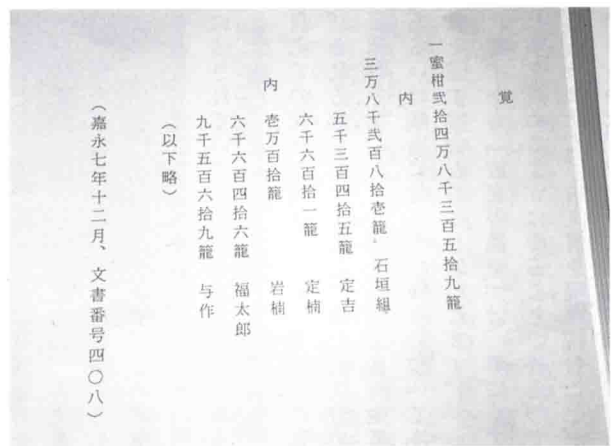 覚
一蜜柑弐拾四万八千三百五拾九籠
内
三万八千弐百八拾壱籠 石垣組
五千三百四拾五籠 定吉
六千六百拾一籠 定楠
内 壱万百拾籠 岩楠
六千六百四拾六籠 福太郎
九千五百六拾九籠 与作
（以下略）
（嘉永七年十二月、文書番号四〇八）